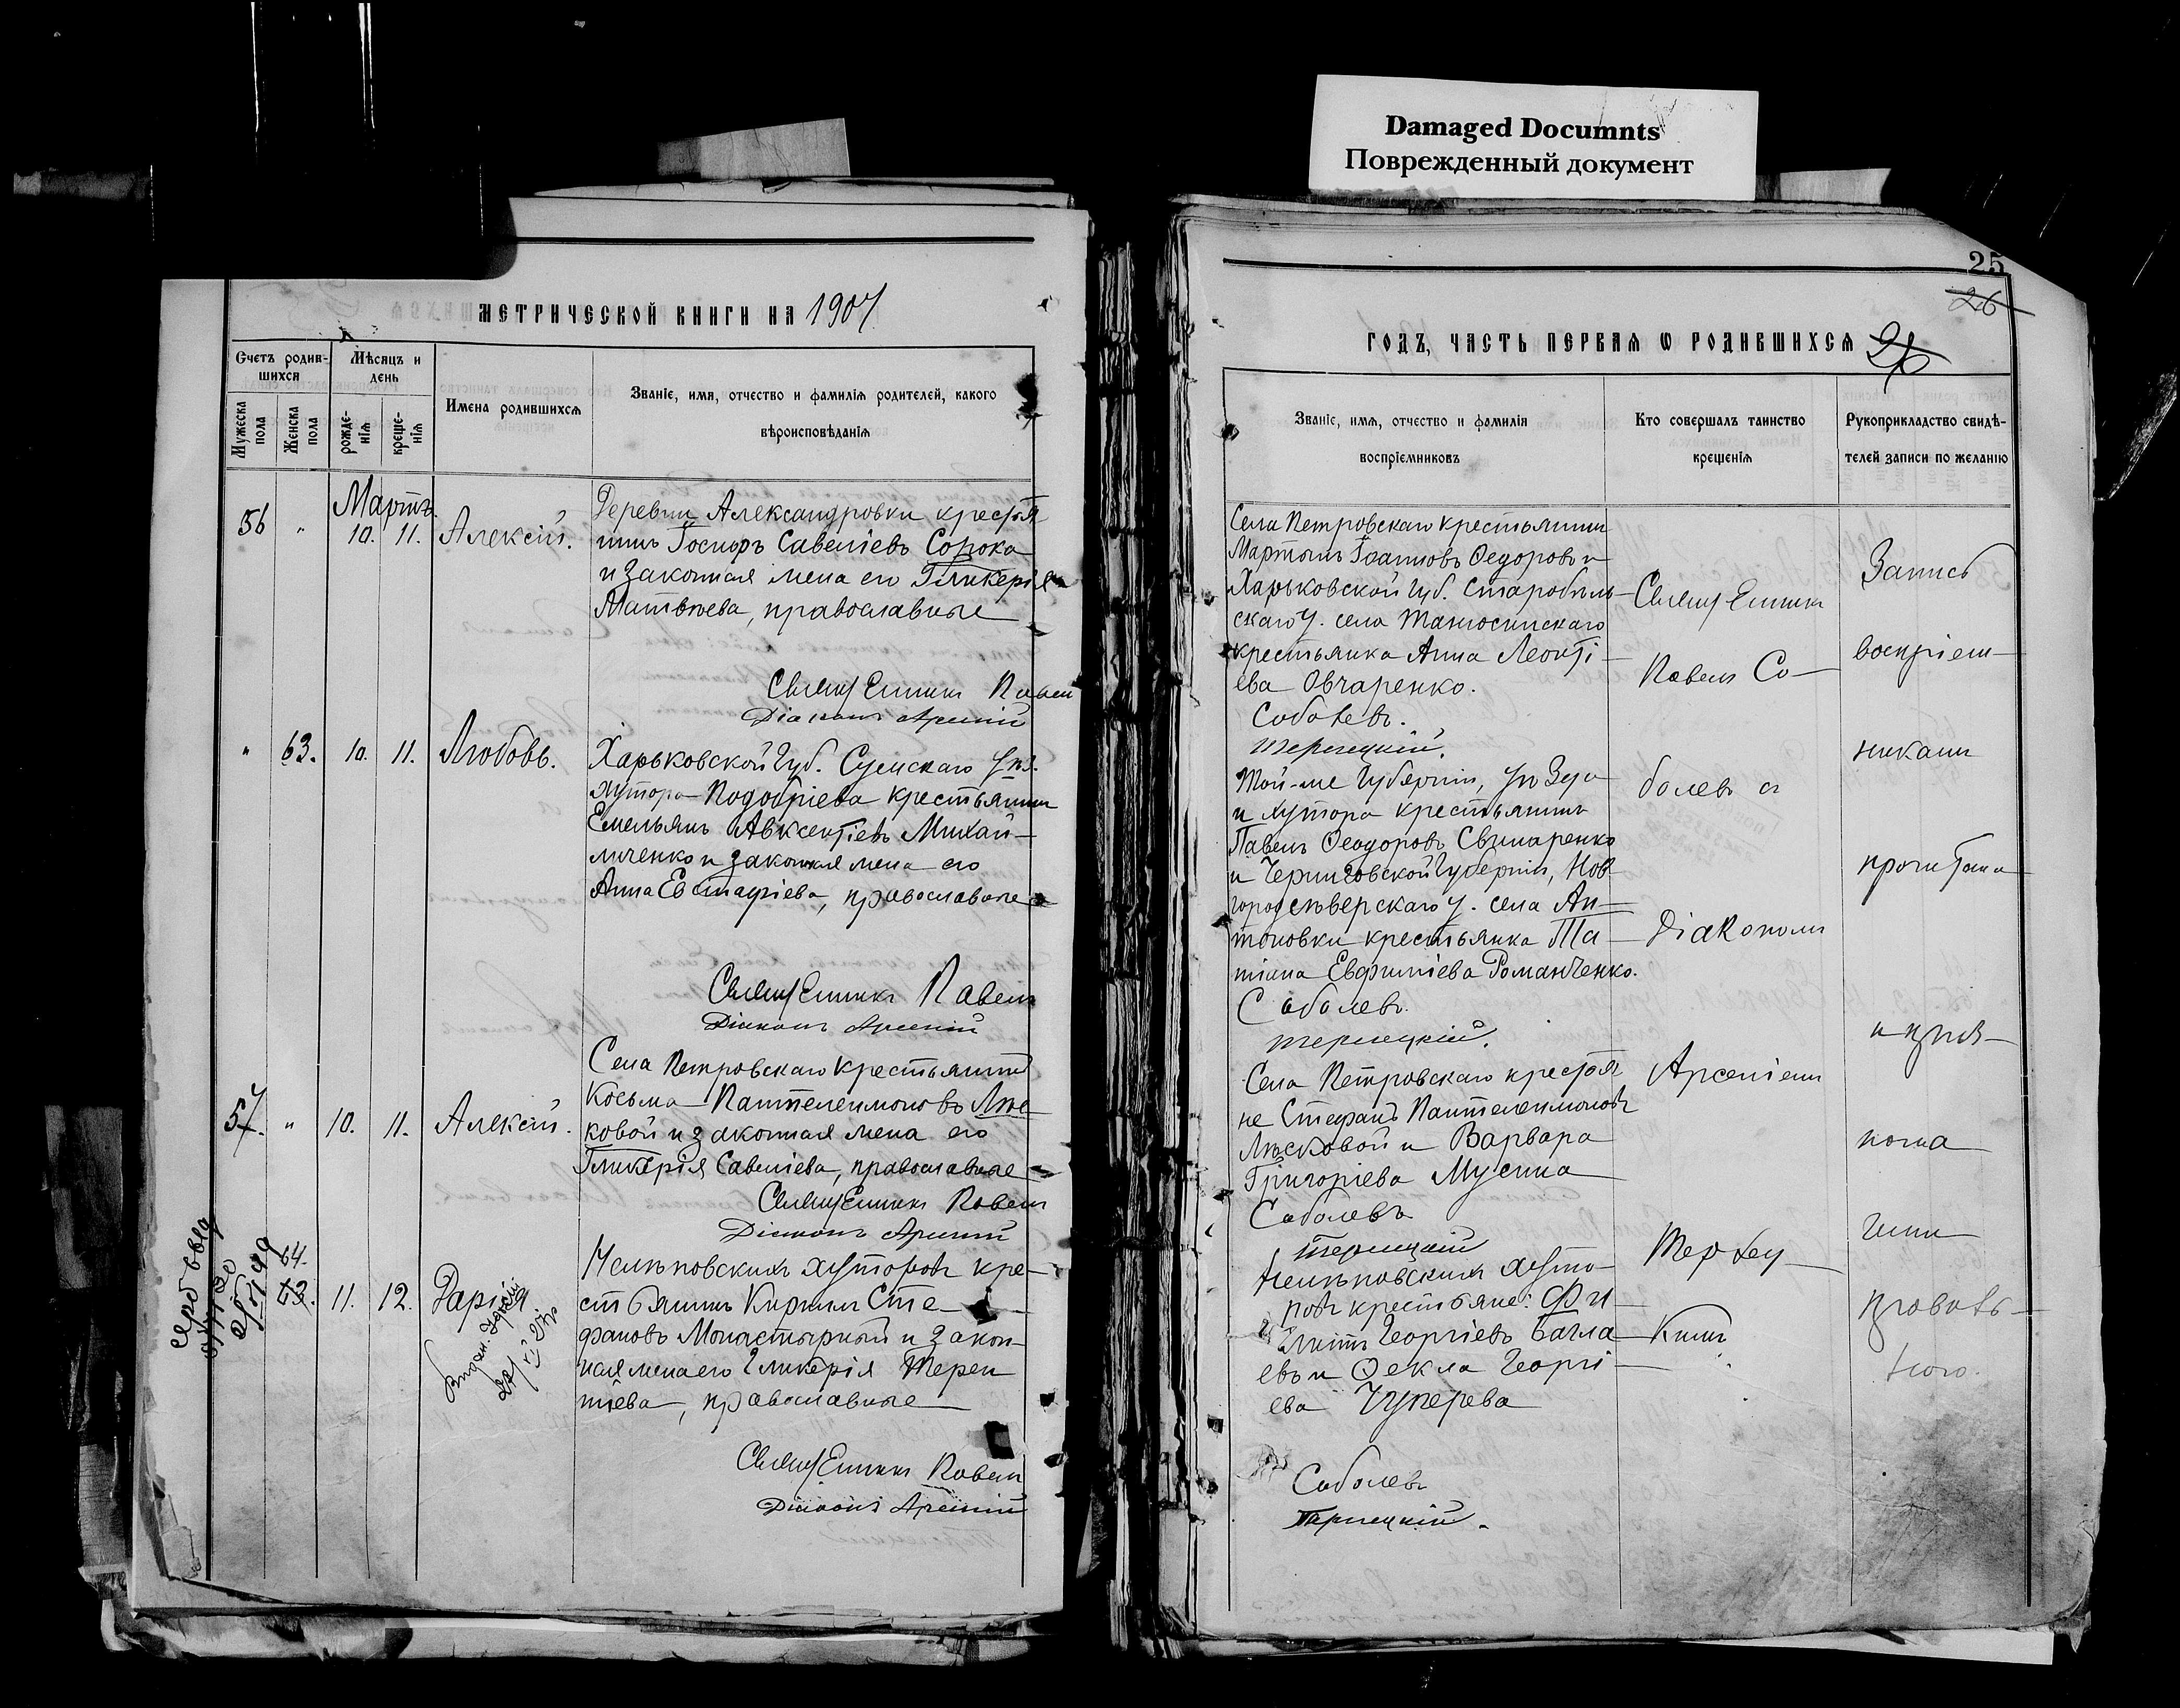 Damaged Documnts
Поврежденный документ
МЕТРИЧЕСКОЙ КНИГИ НА 1907
Счетъ родив-
шихся
Мѣсяцъ и
день
Мужеска
пола
Женска
пола
рожде-
нія
креще-
нія
Имена родившихся
Званіе, имя, отчество и фамилія родителей, какого
вѣроисповѣданія
Мартъ
56 " 10. 11. Алексій.
Деревни Александровки крестья
нинъ Іосифъ Савеліевъ Сорока
и законная жена его Гликерія
Матвѣева, православные
Священникъ Павелъ
Діаконъ Арсеній
" 63. 10. 11. Любовь.
Харьковской Губ. Сумскаго Уѣз.
хутора Подобріева крестьянинъ
Емельянъ Авксентіевъ Михай-
личенко и законная жена его
Анна Евстафіева, православные
Священникъ Павелъ
Діаконъ Арсеній
57. " 10. 11. Алексій.
Села Петровскаго крестьянинъ
Косьма Пантелеимоновъ Лѣс
ковой и законная жена его
Гликерія Савеліева, православные
Священникъ Павелъ
Діаконъ Арсеній
64.
63. 11. 12. Дарія
хуторовъ кре-
стьянинъ Кириллъ Сте-
фановъ Монастырный и закон-
ная жена его Гликерія Терен
тіева, православные
Священникъ Павелъ
Діаконъ Арсеній
25
26
ГОДЪ, ЧАСТЬ ПЕРВАЯ Ѡ РОДИВШИХСЯ 26
Званіе, имя, отчество и фамилія
воспріемниковъ
Кто совершалъ таинство
крещенія
Рукоприкладство свидѣ-
телей записи по желанію
Села Петровскаго крестьянинъ
Мартынъ Іоанновъ Ѳедоровъ и
Харьковской губ. Старобѣль-
скаго у. села
крестьянка Анна Леонті-
ева Овчаренко.
Соболевъ.
Терлецкій.
Той-же Губерніи, уѣзда
и хутора крестьянинъ
Павелъ Ѳеодоровъ Свинаренко
и Черниговской Губерніи, Нов
городсѣверскаго у. села Ан-
тоновки крестьянка Та-
тіана Евфиміева Романченко.
Соболевъ.
Терлецкій.
Села Петровскаго крестья
не Стефанъ Пантелеимоновъ
Лѣсковой и Варвара
Григоріева Мусина
Соболевъ
Терлецкій
хуто-
ровъ крестьяне: Фи-
липпъ Георгіевъ Багла
евъ и Ѳекла Георгі-
ева Чуперева
Соболевъ
Терлецкій.
Священникъ
Павелъ Со-
болевъ съ
Діакономъ
Арсеніемъ
Терлец-
кимъ.
Запись
воспріем-
никами
прочитана
и приз-
нана